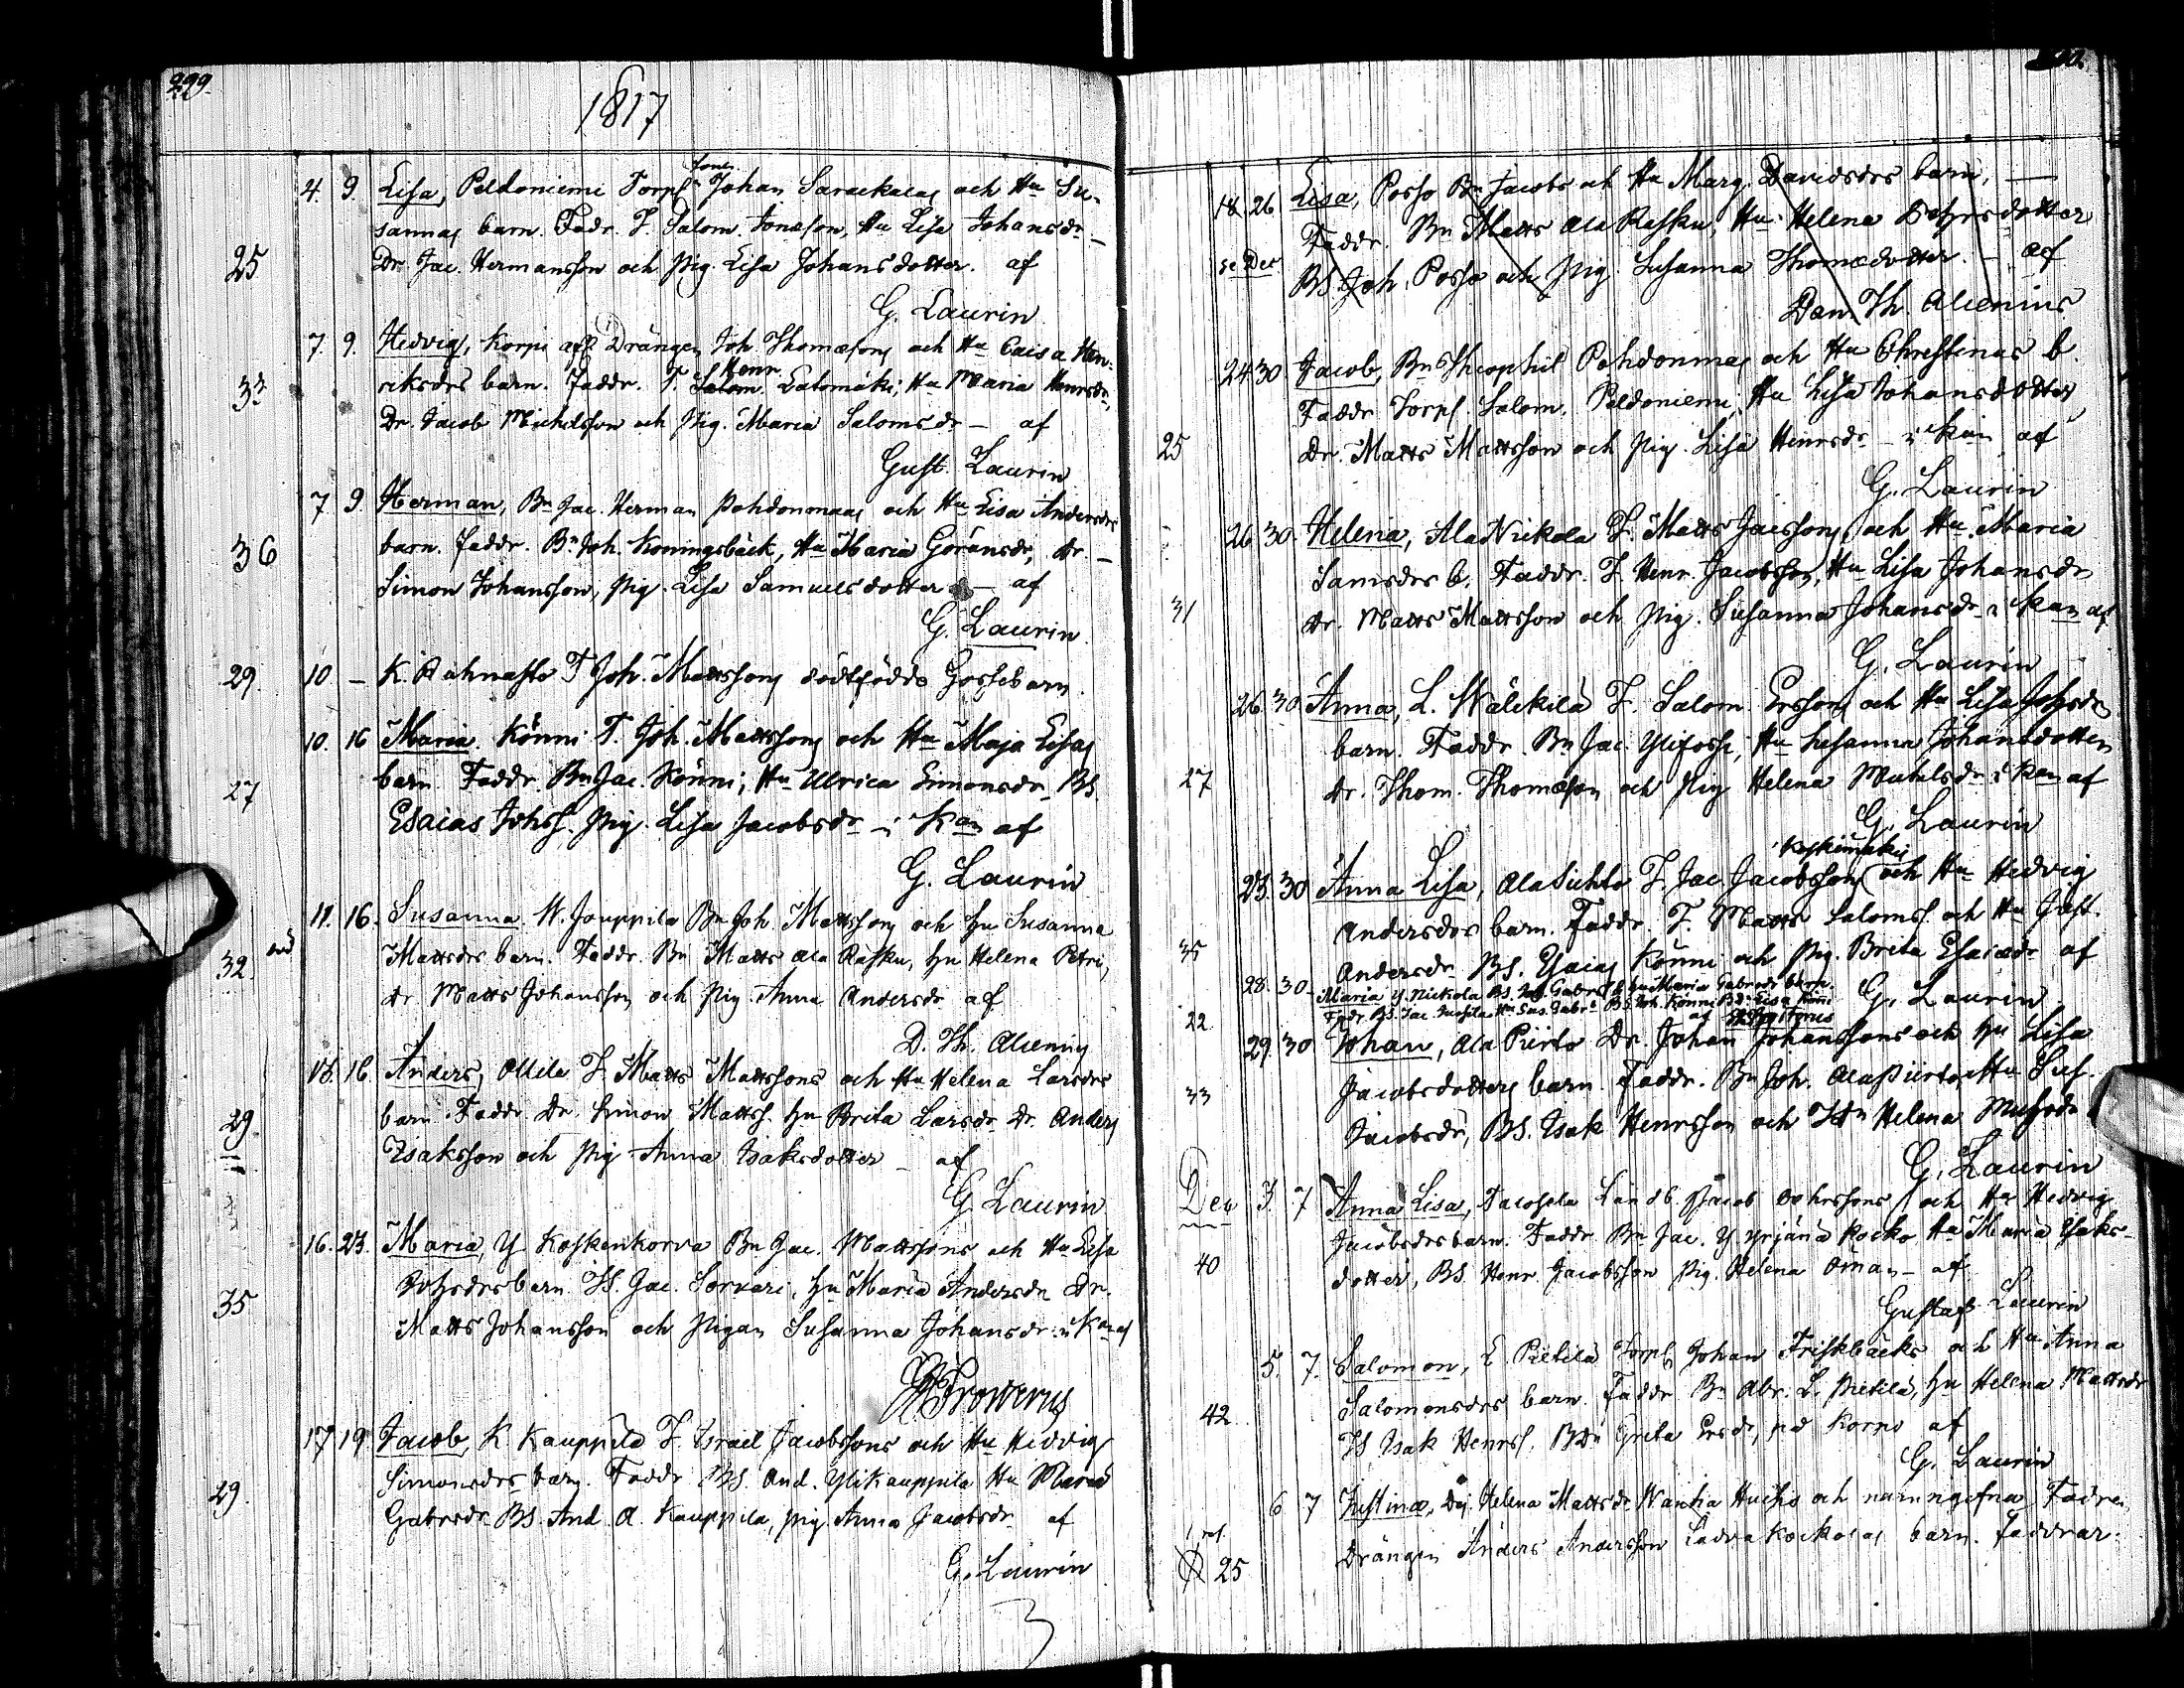 299
1817
Jonæs.
4. 9. Lisa, Peldoniemi Torp. Johan Saraekalas och Hu Su-
sannas barn. Fadr. T. Salom. Jonæson, Hu Lisa Johansdr –
25
Dr. Jac. Hermansson och Pig. Lisa Johansdotter. af
G. Laurin
7. 9. Hedvig, Korpi Drängen Joh. Thomæsons och Hu Caisa Hen-
Henr.
33
riksdrs barn. Faddr. T. Salom. Latomäki; Hu Maria Henrsdr,
Dr. Jacob Michelsson och Pig. Maria Salomsdr – af
Gust. Laurin
7 9 Herman, Bn Jac. Herman Pohdonmaas och Hu Lisa Andersdrs
36
barn. Faddr. Bn Joh. Koningsbäck, Hu Maria Göransdr, Dr. –
Simon Johansson, Pig. Lisa Samuelsdotter – af
G. Laurin
29. 10 – K. Rahnasto T Joh. Mattssons dödfödde Gossebarn.
10. 16 Maria. Könni T. Joh. Mattssons och Hu Maja Lisas
27
barn. Faddr. Bn Jac. Könni; Hu Ulrica Simonsdr BS
Esaias Johss. Pig. Lisa Jacobsdr – i Kan af
G. Laurin
11. 16. Susanna. N. Jouppila Bn Joh. Mattssons och Hu Susanna
32.
Mattsdrs barn. Faddr. Bn Matts Ala Rasku, Hu Helena Petri,
Dr. Matts Johansson och Pig. Anna Andersdr af
D. Th. Alcenius
16. Anders, Ollila T. Matts Mattssons och Hu Helena Larsdrs
29.
barn. Faddr. Dr. Simon Mattss. Hu Brita Larsdr Dr. Anders
Isaksson och Pig Anna Isaksdotter – af
G. Laurin
16. 23. Maria, Y Koskenkorva Bn Jac. Mattssons och Hu Lisa
35
Johsdrs barn. IS. Jac. Sorvari, Hu Maria Andersdr Dr.
Matts Johansson och Pigan Susanna Johansdr i Kan af
Frowerus
17 19 Jacob, K. Kauppila T. Israel Jacobssons och Hu Hedvig
29.
Simonsdrs barn. Faddr BS. And. Ylikauppila Hu Maria
Gabrsdr BS. And. A. Kauppila, Pig. Anna Jacobsdr af
G. Laurin
3
18. 26 Lisa, Posso Bn Jacobs och Hu Marg. Davidsdrs barn, –
Faddr. Bn Matts Ala Rasku, Hu Helena Bengtsdotter
se Dec
BS. Joh. Posso och Pig. Susanna Thomædotter. – af
Dan. Th. Alcenius
24 30 Jacob, Bn Theophil Pohdonmas och Hu Christinas b.
Faddr Torp. Salom. Peldoniemi, Hu Lisa Johansdotter
25
Dr. Matts Mattsson och Pig. Lisa Henrsdr – i Kan af
G. Laurin
26 30. Helena, Ala Nickola T. Matts Jacssons och Hu Maria
Samsdrs b. Faddr. T. Henr. Jacobsson, Hu Lisa Johansdr
31
Dr. Matts Mattsson och Pig. Susanna Johansdr i Kan af
G. Laurin
26. 30. Anna, L. Wälikilä T. Salom. Erssons och Hu Lisa Johsdrs
barn. Faddr. Bn Jac. Yliposse, Hu Susanna Johansdotter
27
Dr. Thom. Thomæson och Pig Helena Michelsdr i Kan af
G. Laurin
Koskimäki
23. 30 Anna Lisa, Ala T. Jac. Jacobssons och Hu Hedvig
Andersdrs barn. Faddr. T. Matts Salomss. och Hu Just.
35
Andersdr BS. Esaias Könni och Pig. Brita Esaiædr af
28. 30 Maria Y. Nickola BS. Gabrs. Hu Maria Gabrsdr barn.
G. Laurin
22 Fadr. BS. Jac. Hu Sus. Gabrs. BS. Joh. Könni Bdr Lisa Könni
af
29. 30 Johan, Ala Piirto Dr. Johan Johanssons och Hu Lisa
33
Jacobsdotters barn. Faddr. Bn Joh. Alapiirto Hu Sus.
Jacobsdr, BS. Isak Henrsson och Helena
G. Laurin
Dec 3. 7 Anna Lisa, Jacob och Hu Hedvig
Jacobsdrs barn. Faddr. Bn Jac. Y. Yrjänä Kocko Hu Maria Isaks-
40
dotter, BS. Henr. Jacobsson Pig. Helena Öman – af
Gustaf Laurin
5. 7. Salomon, L. Pietilä Torp. Johan Friskbäcks och Hu Anna
Salomonsdrs barn. Faddr. Bn Abr. L. Pietilä, Hu Helena Mattsdr
42
IS Isak Henrss. Bdr Greta Ersdr, på Korpo af
G. Laurin
6 7 Justina, Helena Mattsdr Wantia Huchs och namngifna Fadren
25
Drängen Anders Andersson Ladvakockolas barn. Faddrar.